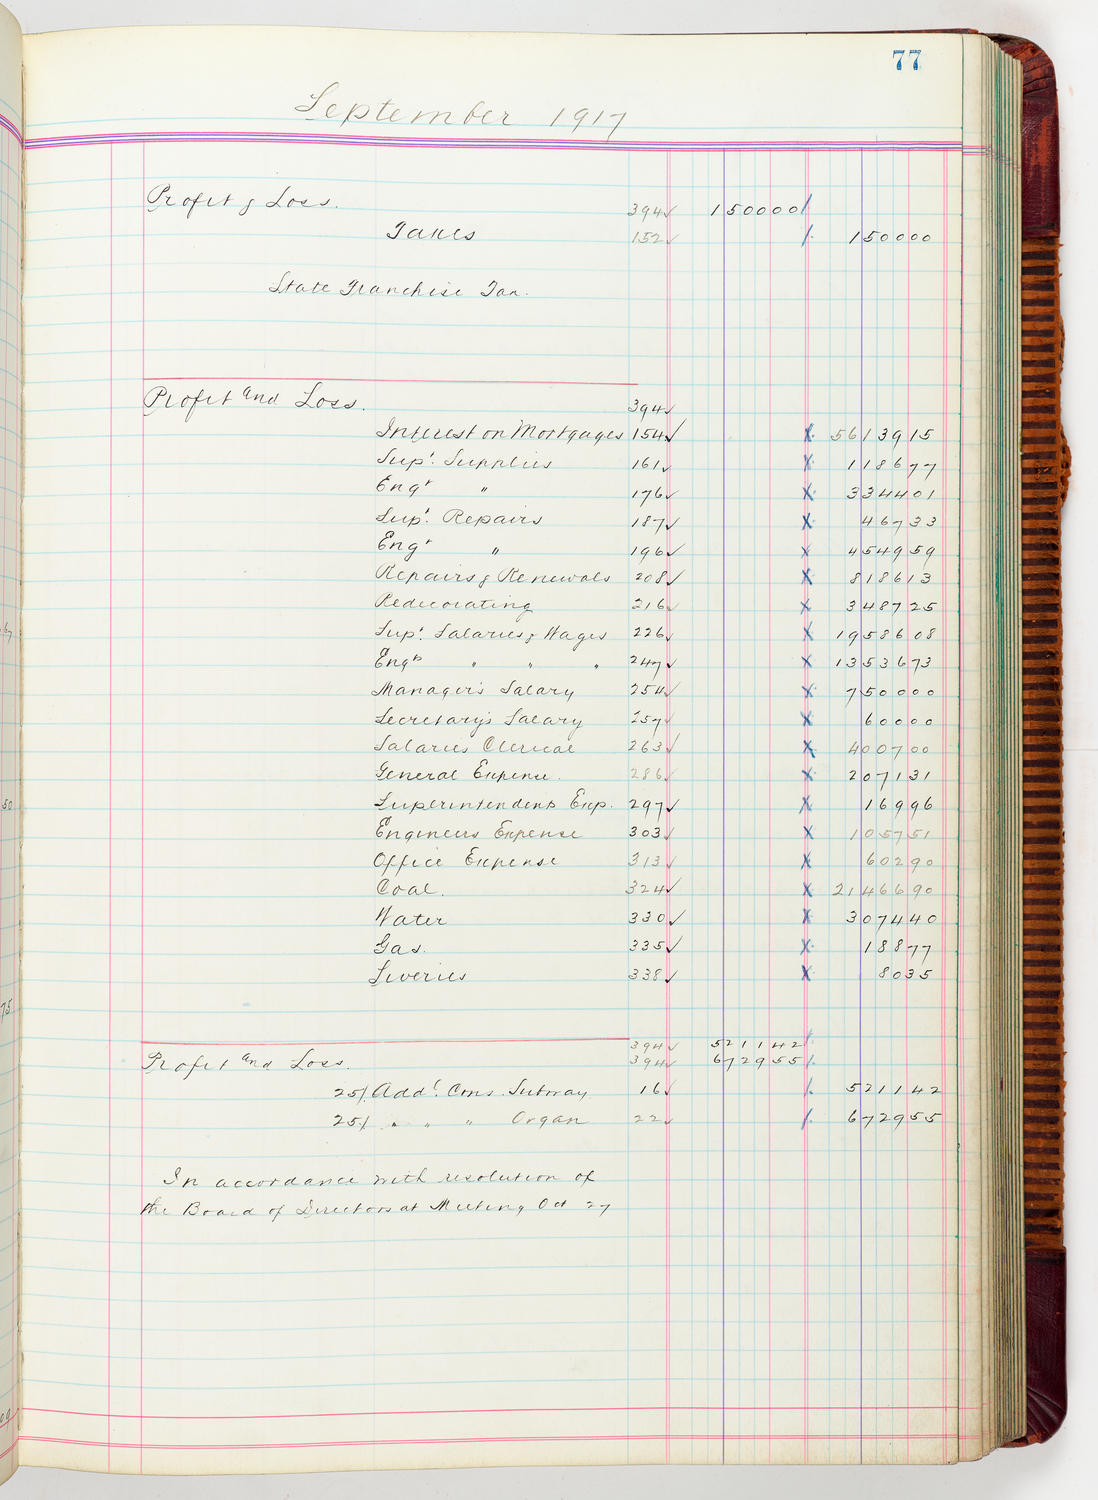 77
September 1917
Profit & Loss. 394✓ 150000/
Taxes 152✓ /. 150000
State Franchise Tax.
Profit and Loss. 394✓
Interest on Mortgages 154✓ X. 5613915
Supt. Supplies 161✓ X. 118677
Engr " 176✓ X. 334401
Supt. Repairs 187✓ X. 46733
Engr " 196✓ X 454959
Repairs & Renewals 208✓ X 818613
Redecorating 216✓ X 348725
Supt. Salaries & Wages 226✓ X 1958608
Engrs " " " 247✓ X 1353673
Manager's Salary 254✓ X 750000
Secretary's Salary 257✓ X 60000
Salaries Clerical 263✓ X 400700
General Expense. 286✓ X 207131
Superintendents Exp. 297✓ X 16996
Engineers Expense 303✓ X 105751
Office Expense 313✓ X 60290
Coal. 324✓ X 2146690
Water 330✓ X 307440
Gas. 335✓ X. 18877
Liveries 338✓ X 8035
394✓ 521142/
Profit and Loss. 394✓ 672955/.
25/. Addl. Cons. Subway 16✓ /. 521142
25/. " " " Organ 22✓ /. 672955
In accordance with resolution of
the Board of Directors at Meeting Oct 27
67
50
75
00